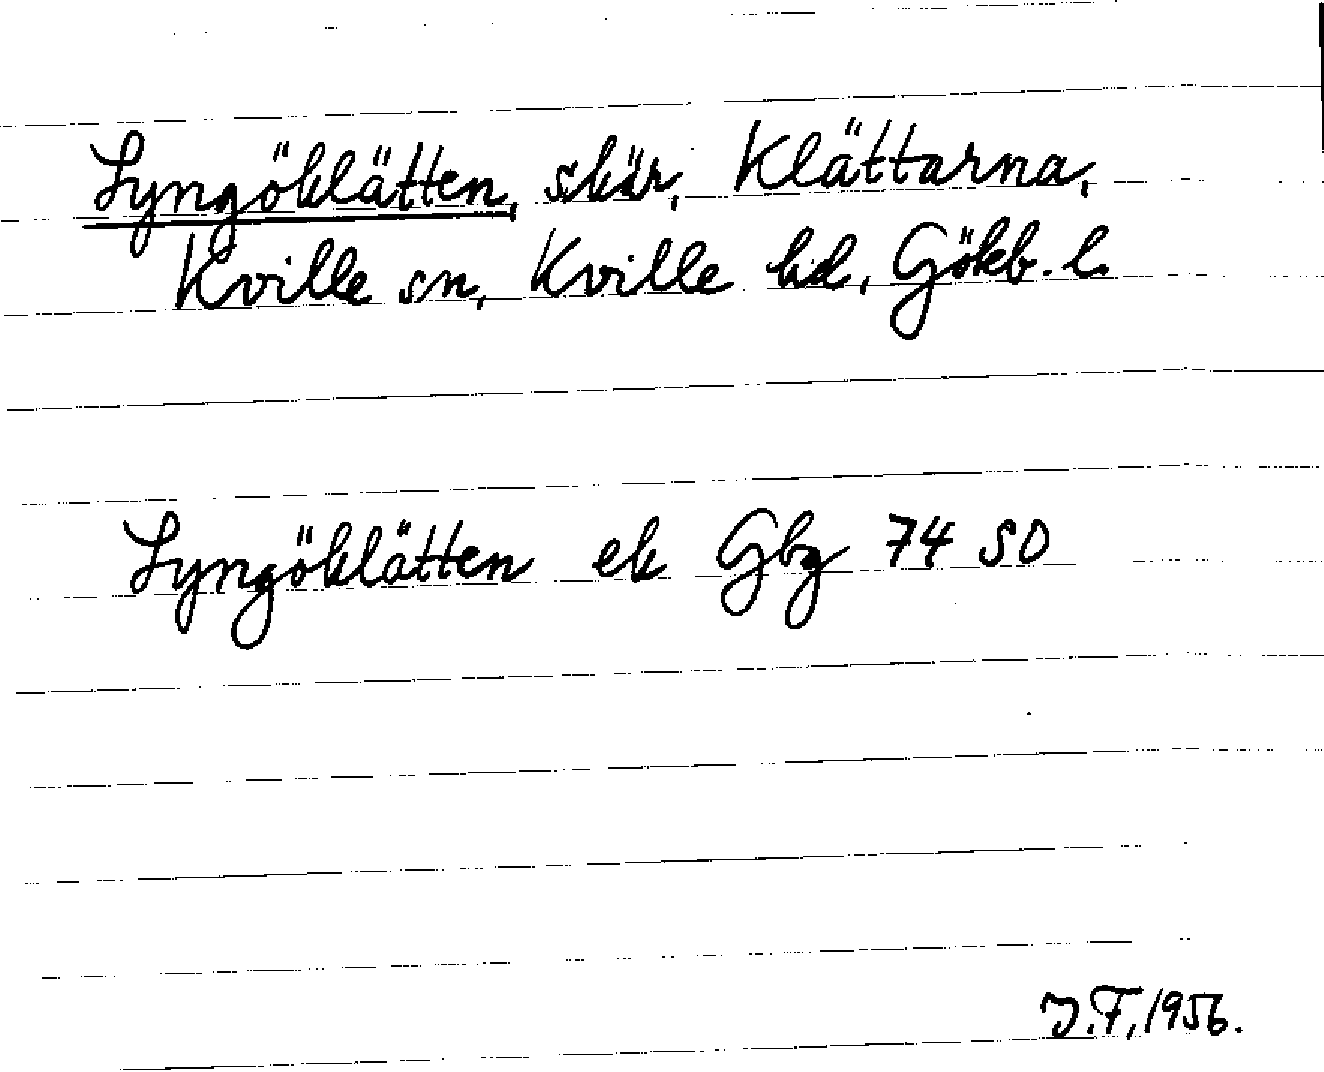 Lyngöklätten, skär, Klättarna,
Kville sn, Kville hd, Gökb. l.
Lyngöklätten ek Gbg 74 SO
J.F, 1956.